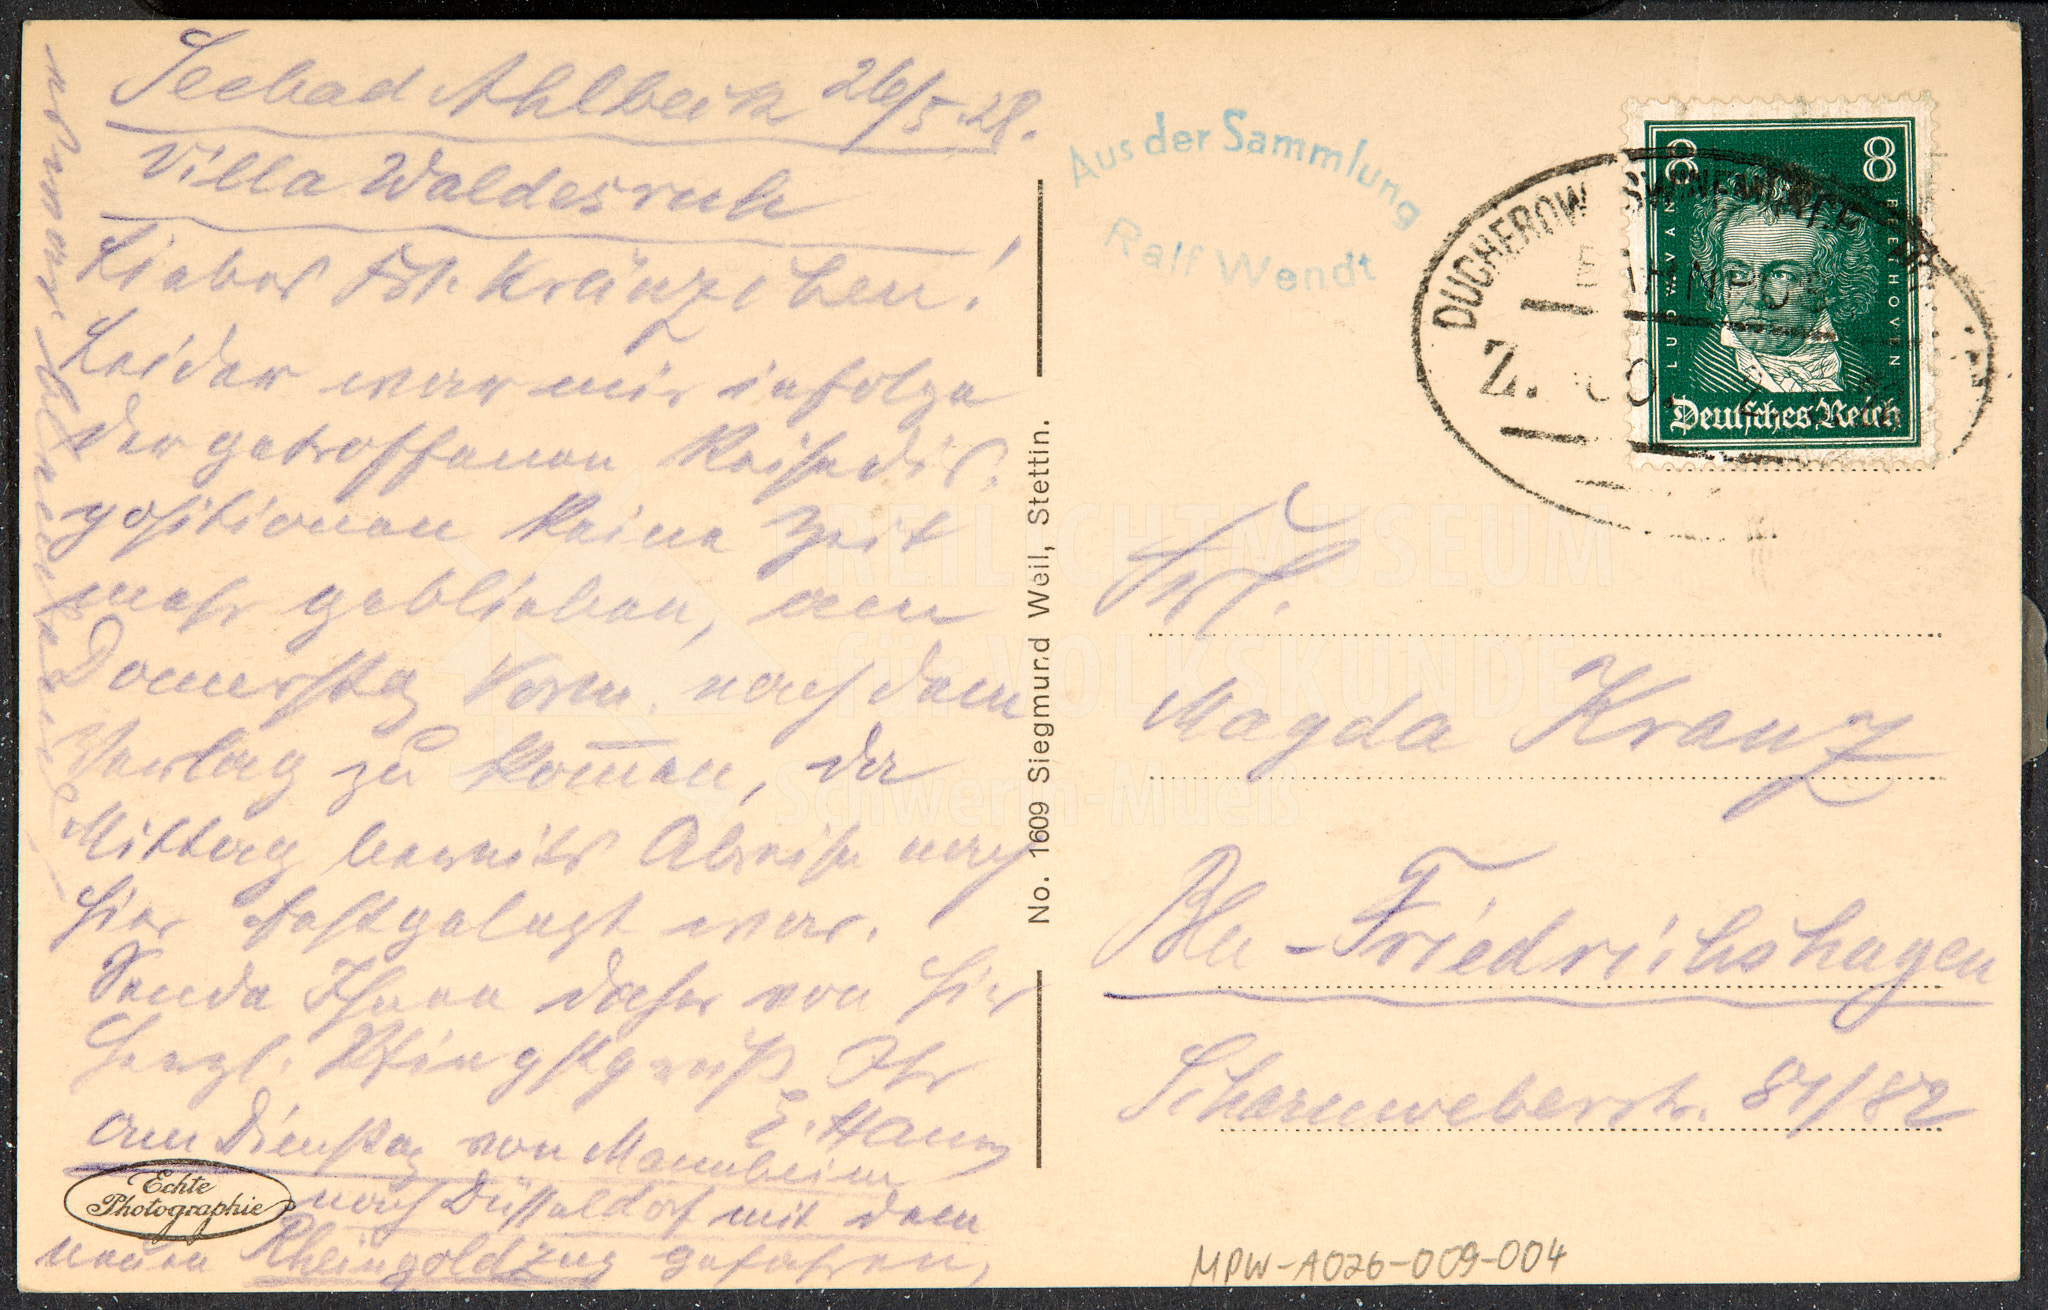 Seebad Ahlbeck 26/5.28.
Villa Waldesruh
Liebes Frl. Kränzchen!
Leider war mir infolge
der getroffenen Reisedis-
positionen keine Zeit
mehr geblieben, am
Donnerstag Vorm. nach dem
Verlag zu kommen, da
Mittag bereits Abreise nach
hier festgelegt war.
Sende Ihnen daher von hier
herzl. Pfingstgruß. Ihr
E. Hann
am Dienstag von Mannheim
nach Düsseldorf mit dem
neuen Rheingoldzug gefahren,
Echte
Photographie
No. 1609 Siegmund Weil, Stettin.
Aus der Sammlung
Ralf Wendt
DUCHEROW SWINEMÜNDE
BAHNPOST
Z.
8 8
LUDWIG VAN BEETHOVEN
Deutsches Reich
Frl.
Magda Kranz
Bln-Friedrichshagen
Scharnweberstr. 81/82
MPW-A026-009-004
FREILICHTMUSEUM
für VOLKSKUNDE
Schwerin-Mueß